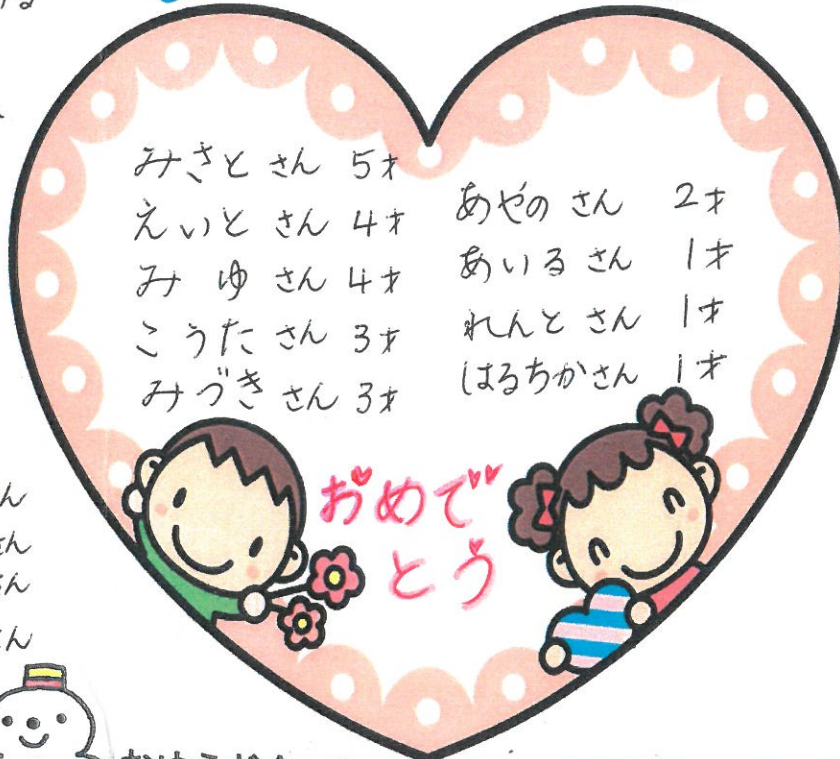 みさと さん 5才
えいと さん 4才
み ゆ さん 4才
こうた さん 3才
みづき さん 3才
あやの さん 2才
あいる さん 1才
れんと さん 1才
はるちかさん 1才
おめで
とう
ん
さん
さん
さん